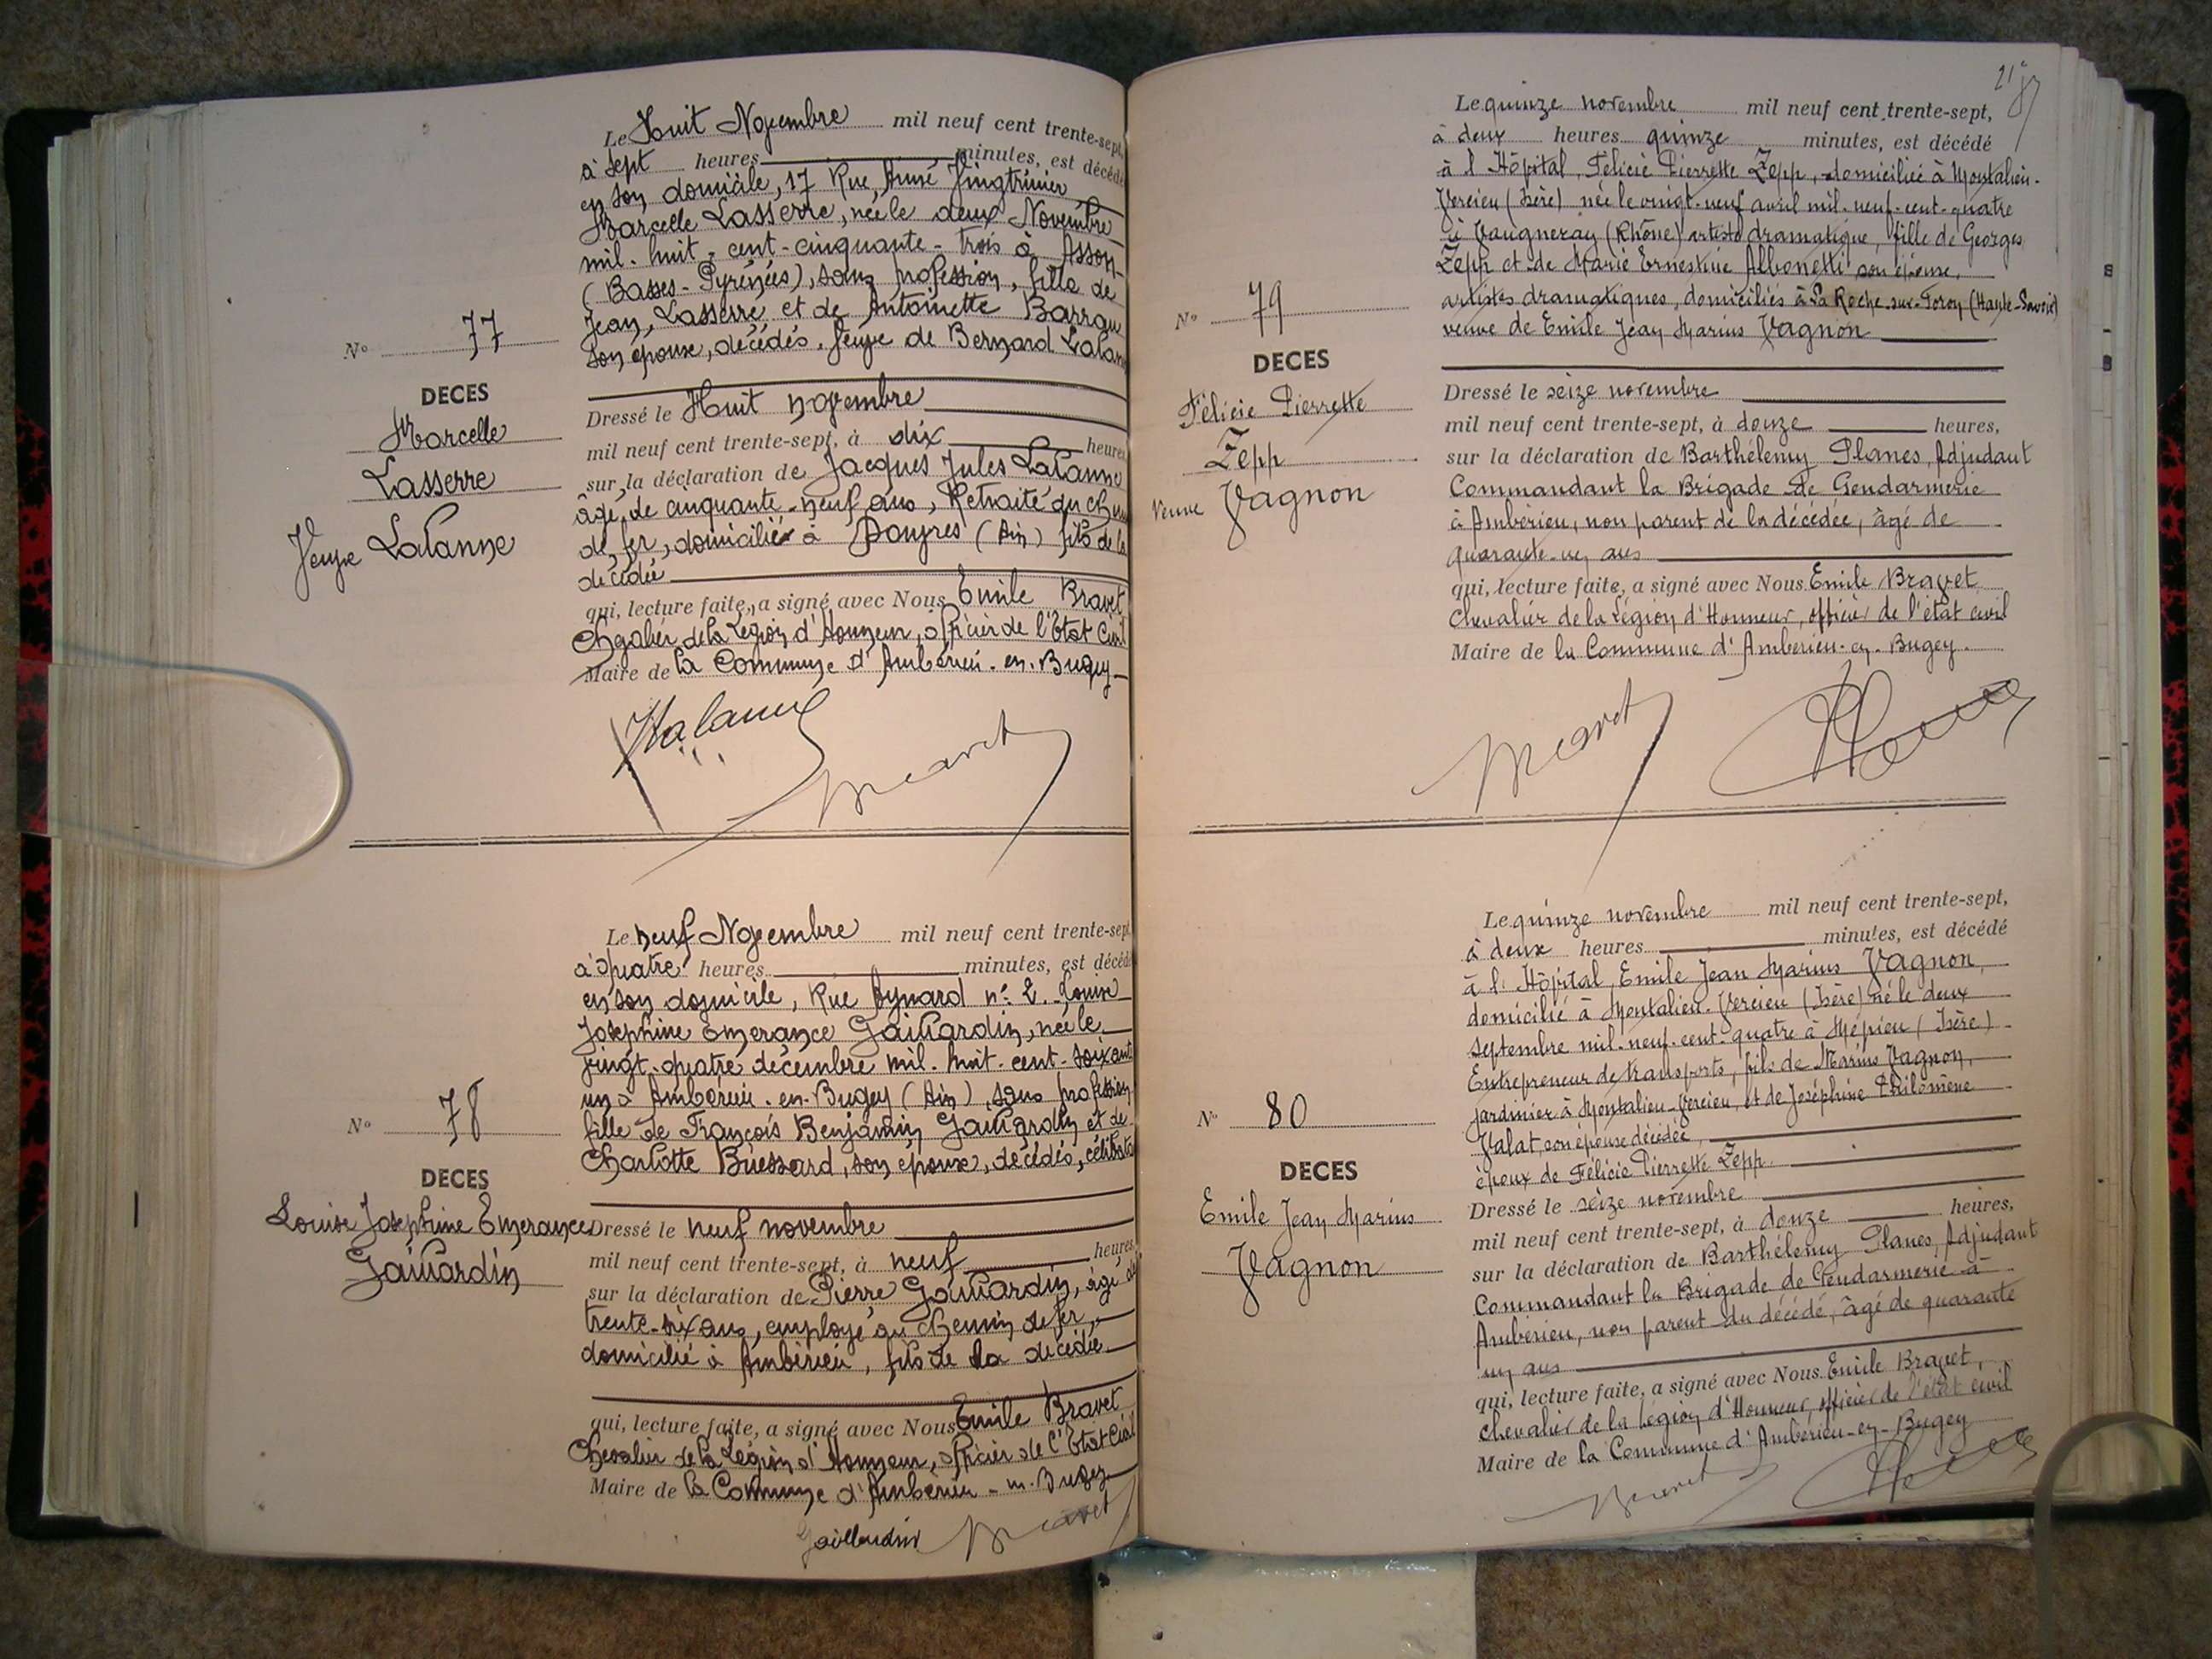 Le Huit Novembre mil neuf cent trente-sept,
à sept heures minutes, est décédé
en son domicile, 17 Rue Aimé Vingtrinier
Marcelle Lasserre, née le deux Novembre
mil-huit-cent-cinquante-trois à Asson
(Basses-Pyrénées), sans profession, fille de
Jean Lasserre et de Antoinette Barrau
son épouse, décédés. Veuve de Bernard Lalanne
N° 77
DECES
Marcelle
Lasserre
Veuve Lalanne
Dressé le Huit novembre
mil neuf cent trente-sept, à dix heures
sur la déclaration de Jacques Jules Lalanne
âgé de cinquante-neuf ans, Retraité du chemin
de fer, domicilié à Douvres (Ain) fils de la
décédée
qui, lecture faite, a signé avec Nous Emile Bravet
Chevalier de la Légion d'Honneur, officier de l'Etat Civil
Maire de la Commune d'Ambérieu-en-Bugey
Jlalanne
Bravet
Le neuf Novembre mil neuf cent trente-sept
à quatre heures minutes, est décédé
en son domicile, Rue Aynard n° 2. Louise
Joséphine Emerance Gaillardin, née le
vingt-quatre décembre mil-huit-cent-soixante
un à Ambérieu-en-Bugey (Ain), sans profession
fille de François Benjamin Gaillardin et de
Charlotte Buessard, son épouse, décédés, célibataire
N° 78
DECES
Louise Joséphine Emerance
Gaillardin
Dressé le neuf novembre
mil neuf cent trente-sept, à neuf heures
sur la déclaration de Pierre Gaillardin, âgé de
trente-six ans, employé au chemin de fer,
domicilié à Ambérieu, fils de la décédée
qui, lecture faite, a signé avec Nous Emile Bravet
Chevalier de la Légion d'Honneur, officier de l'Etat Civil
Maire de la Commune d'Ambérieu-en-Bugey
Gaillardin Bravet
Le quinze novembre mil neuf cent trente-sept,
à deux heures quinze minutes, est décédé
à l'Hôpital, Félicie Pierrette Zepp, domiciliée à Montalieu-
Vercieu (Isère) née le vingt-neuf avril mil-neuf-cent-quatre
à Vaugneray (Rhône) artiste dramatique, fille de Georges
Zepp et de Marie Ernestine Albonetti son épouse,
artistes dramatiques, domiciliés à La Roche-sur-Foron (Haute-Savoie)
veuve de Emile Jean Marius Vagnon
N° 79
DECES
Félicie Pierrette
Zepp
Veuve Vagnon
Dressé le seize novembre
mil neuf cent trente-sept, à douze heures,
sur la déclaration de Barthélemy Planes, Adjudant
Commandant la Brigade de Gendarmerie
à Ambérieu, non parent de la décédée, âgé de
quarante-un ans
qui, lecture faite, a signé avec Nous Emile Bravet
Chevalier de la Légion d'Honneur, officier de l'état civil
Maire de la Commune d'Ambérieu-en-Bugey.
Bravet Planes
Le quinze novembre mil neuf cent trente-sept,
à deux heures minutes, est décédé
à l'Hôpital, Emile Jean Marius Vagnon,
domicilié à Montalieu-Vercieu (Isère) né le deux
septembre mil-neuf-cent-quatre à Mépieu (Isère)
Entrepreneur de transports, fils de Marius Vagnon,
jardinier à Montalieu-Vercieu, et de Joséphine Philomène
Valat, son épouse décédée,
époux de Félicie Pierrette Zepp.
N° 80
DECES
Emile Jean Marius
Vagnon
Dressé le seize novembre
mil neuf cent trente-sept, à douze heures,
sur la déclaration de Barthélemy Planes, Adjudant
Commandant la Brigade de Gendarmerie à
Ambérieu, non parent du décédé, âgé de quarante
un ans
qui, lecture faite, a signé avec Nous Emile Bravet,
Chevalier de la Légion d'Honneur, officier de l'état civil
Maire de la Commune d'Ambérieu-en-Bugey
Bravet Planes